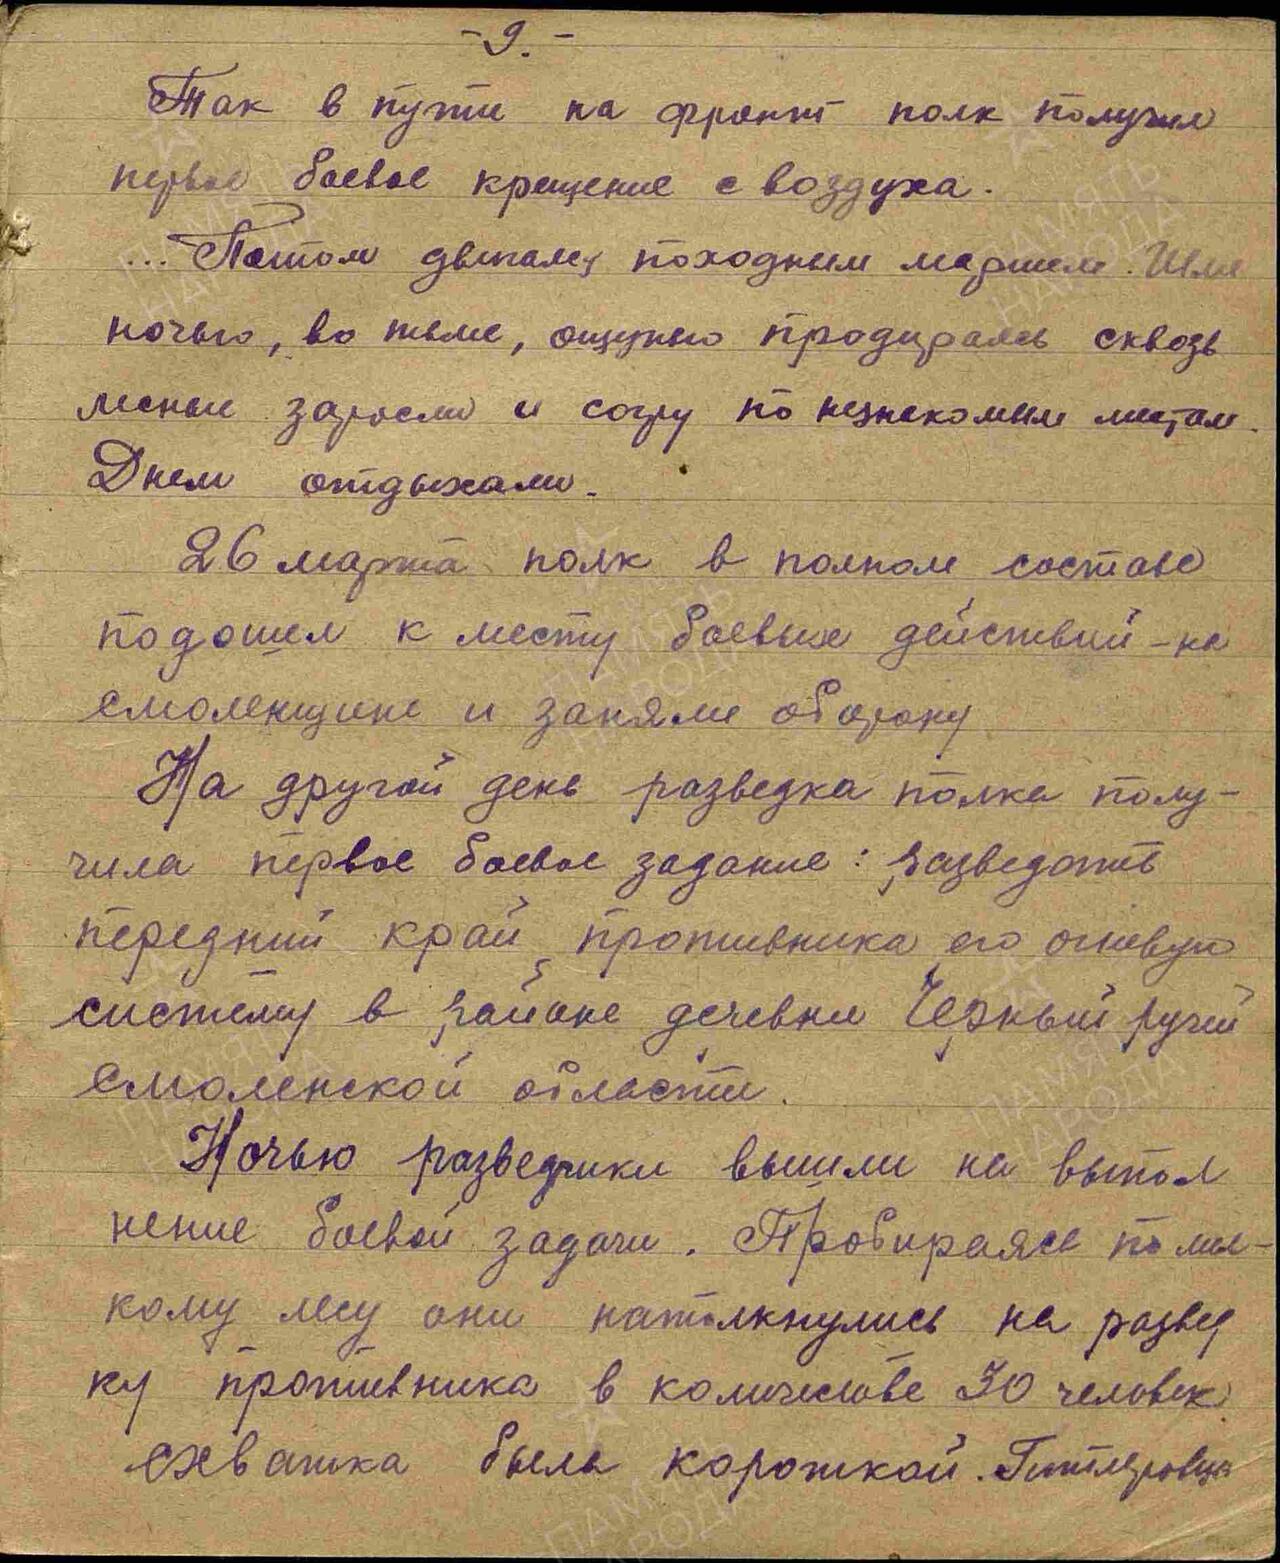 -9.-
Так в пути на фронт полк получил
первое боевое крещение с воздуха.
... Потом двигались походным маршем. Шли
ночью, во тьме, ощупью продираясь сквозь
лесные заросли и согру по незнакомым местам.
Днем отдыхали.
26 марта полк в полном составе
подошел к месту боевых действий - на
смоленщине и заняли оборону
На другой день разведка полка полу-
чила первое боевое задание: разведать
передний край, противника его огневую
систему в районе деревни Черный ручей
смоленской области.
Ночью разведчики вышли на выпол
нение боевой задачи. Пробираясь по мел-
кому лесу они натолкнулись на развед
ку противника в количестве 30 человек
схватка была короткой. Гитлеровцы
ПАМЯТЬ
НАРОДА